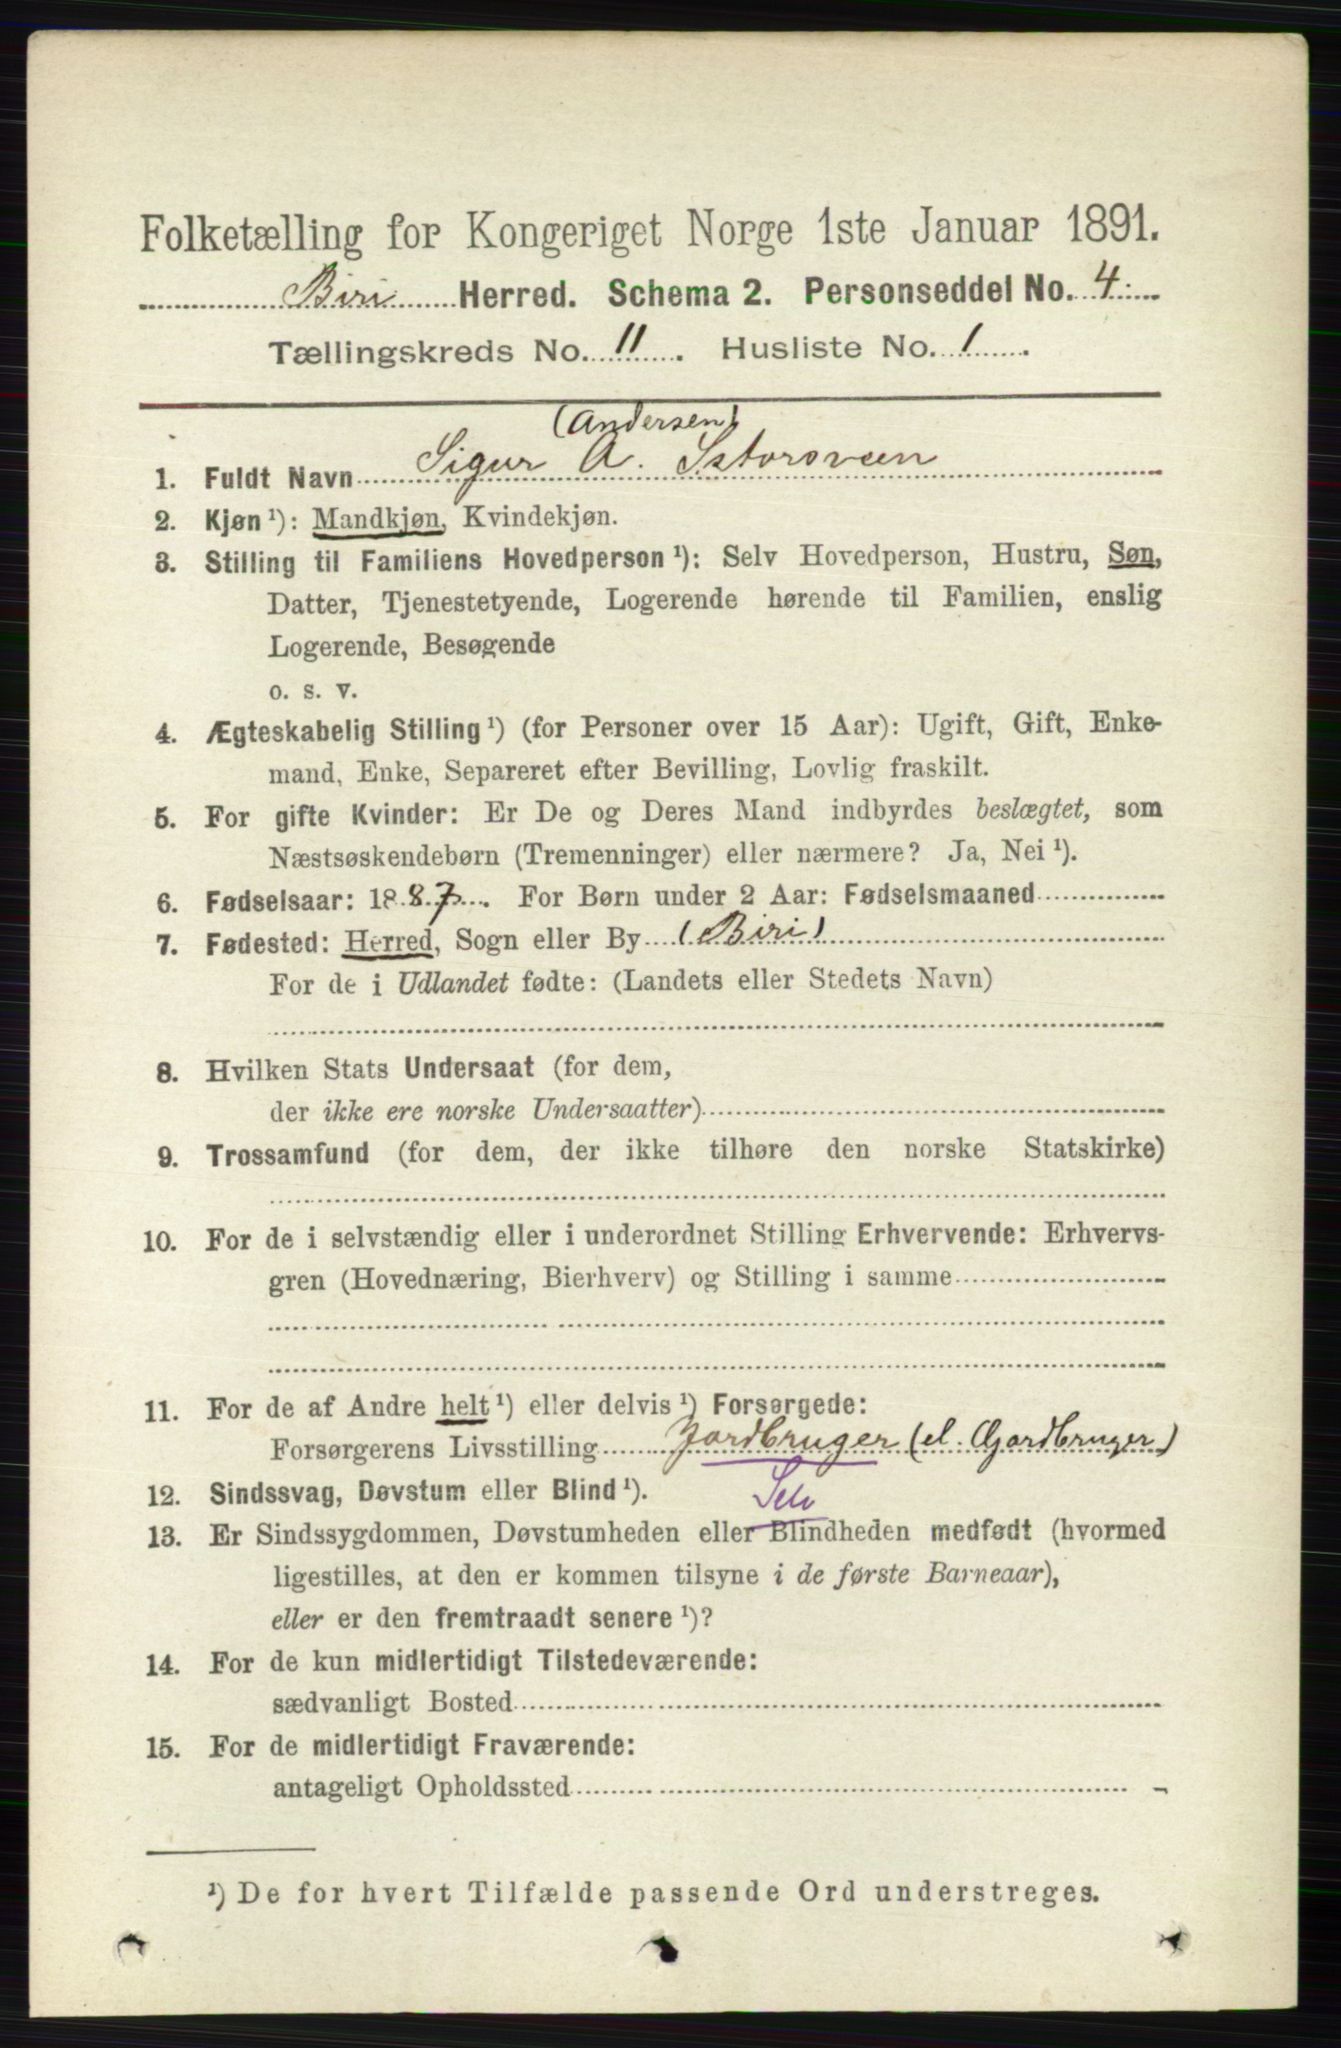 Folketælling for Kongeriget Norge 1ste Januar 1891.
Biri Herred. Schema 2. Personseddel No. 4.
Tællingskreds No. 11. Husliste No. 1.
(Andersen)
1. Fuldt Navn Sigur A. Storsveen
2. Kjøn ¹): Mandkjøn, Kvindekjøn.
3. Stilling til Familiens Hovedperson ¹): Selv Hovedperson, Hustru, Søn,
Datter, Tjenestetyende, Logerende hørende til Familien, enslig
Logerende, Besøgende
o. s. v.
4. Ægteskabelig Stilling ¹) (for Personer over 15 Aar): Ugift, Gift, Enke-
mand, Enke, Separeret efter Bevilling, Lovlig fraskilt.
5. For gifte Kvinder: Er De og Deres Mand indbyrdes beslægtet, som
Næstsøskendebørn (Tremenninger) eller nærmere? Ja, Nei ¹).
6. Fødselsaar: 1887. For Børn under 2 Aar: Fødselsmaaned
7. Fødested: Herred, Sogn eller By (Biri)
For de i Udlandet fødte: (Landets eller Stedets Navn)
8. Hvilken Stats Undersaat (for dem,
der ikke ere norske Undersaatter)
9. Trossamfund (for dem, der ikke tilhøre den norske Statskirke)
10. For de i selvstændig eller i underordnet Stilling Erhvervende: Erhvervs-
gren (Hovednæring, Bierhverv) og Stilling i samme
11. For de af Andre helt ¹) eller delvis ¹) Forsørgede:
Forsørgerens Livsstilling Jordbruger (el. Gjordbruger)
12. Sindssvag, Døvstum eller Blind ¹). Selv
13. Er Sindssygdommen, Døvstumheden eller Blindheden medfødt (hvormed
ligestilles, at den er kommen tilsyne i de første Barneaar),
eller er den fremtraadt senere ¹)?
14. For de kun midlertidigt Tilstedeværende:
sædvanligt Bosted
15. For de midlertidigt Fraværende:
antageligt Opholdssted
¹) De for hvert Tilfælde passende Ord understreges.